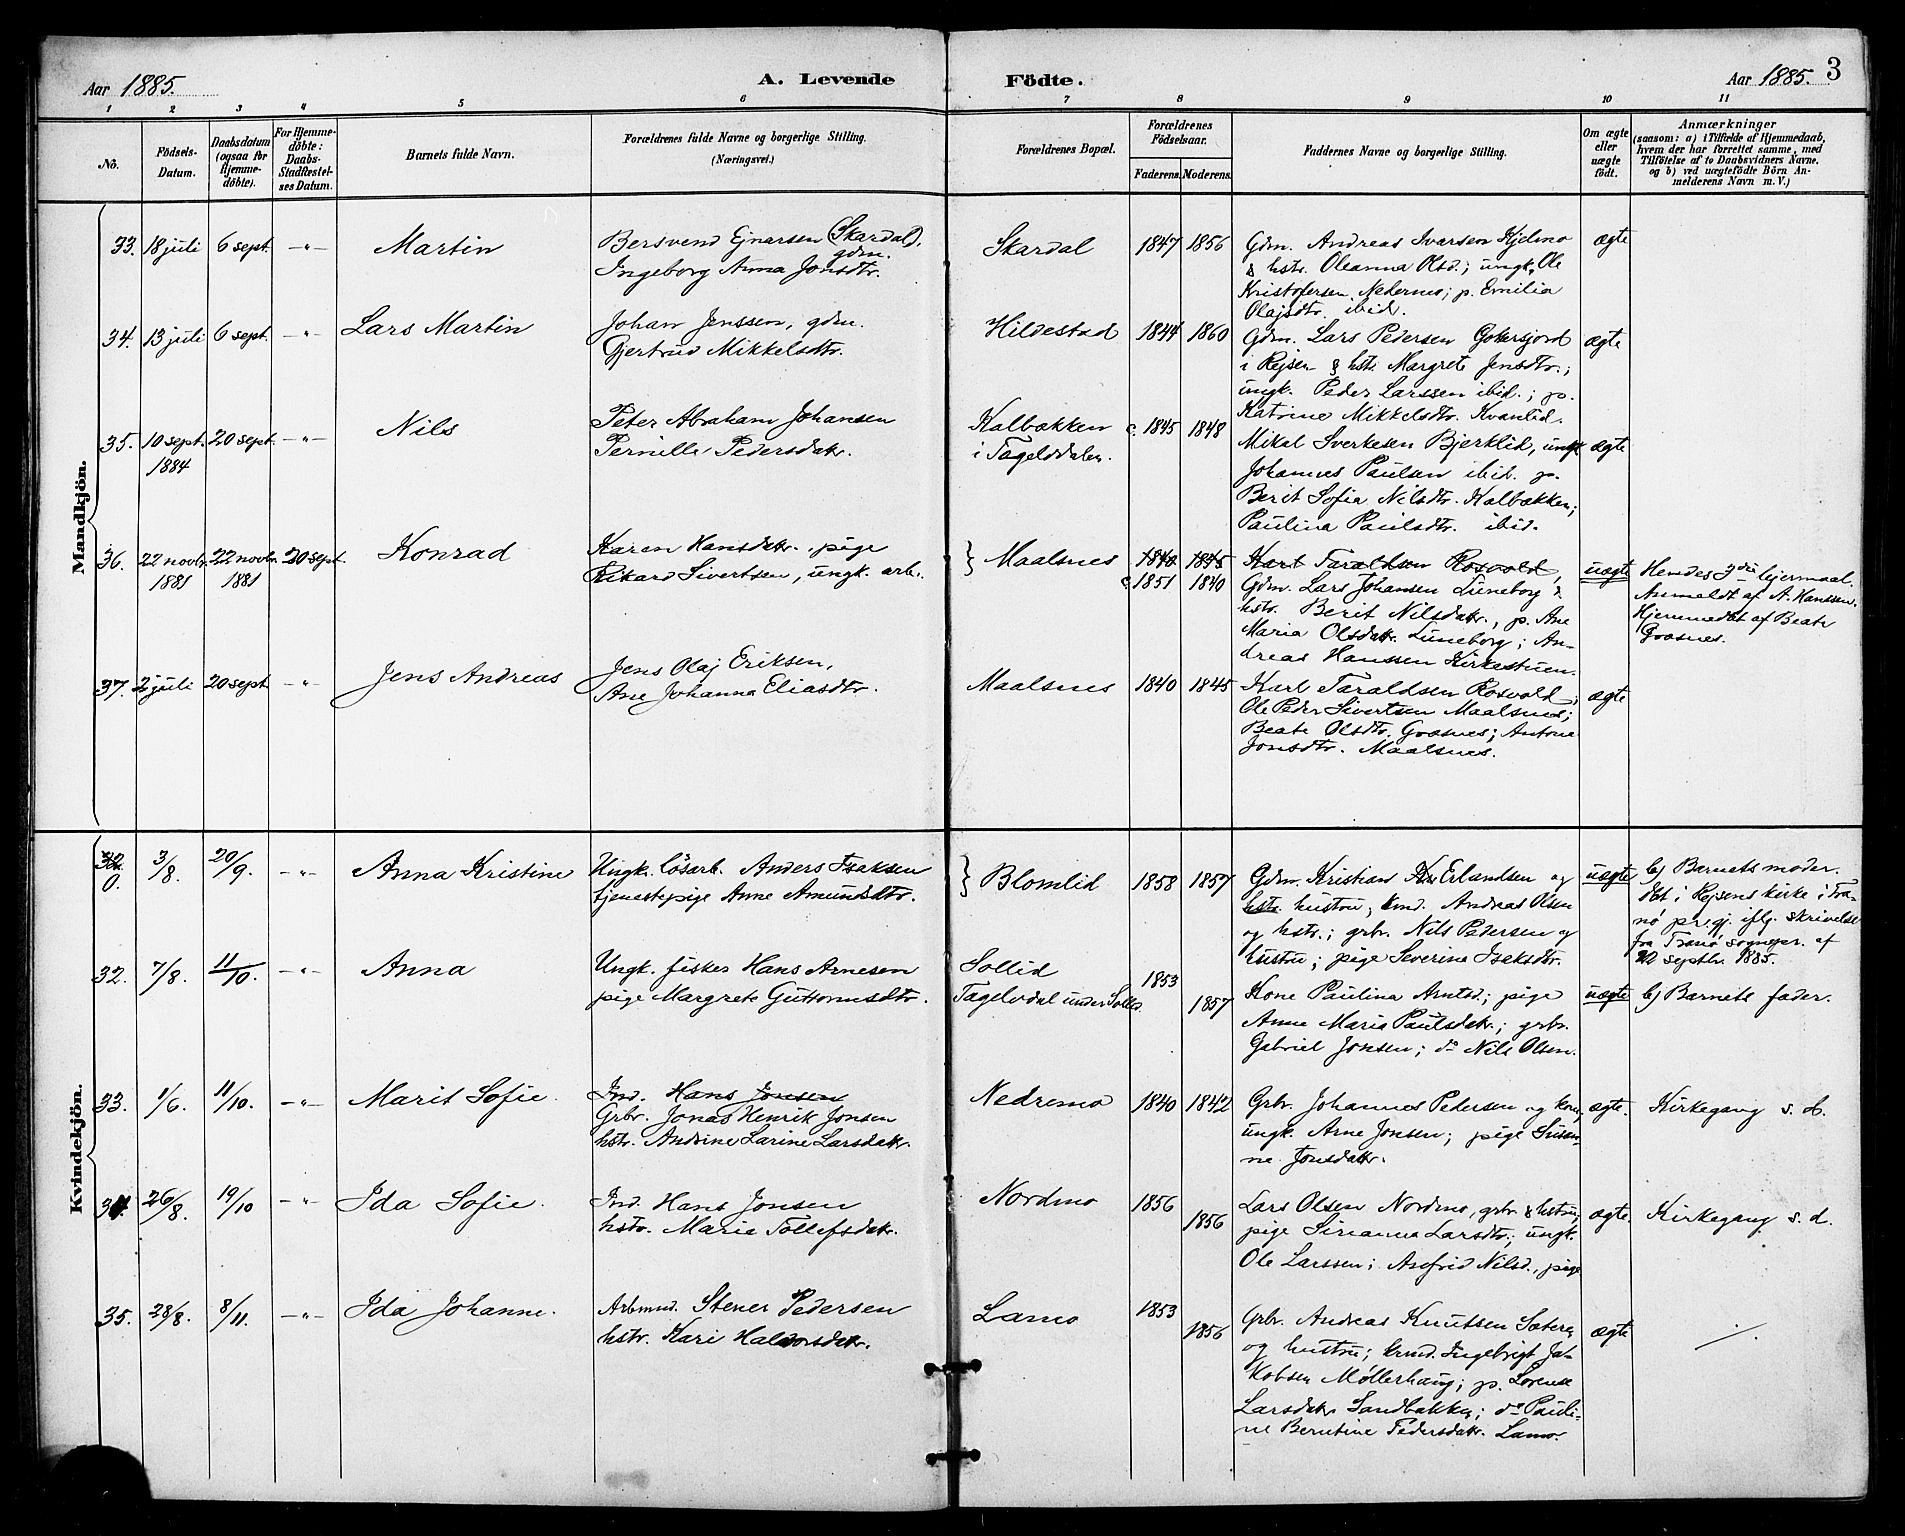 Aar 1885.
A. Levende
Födte.
Aar 1885. 3
1 2 3 4 5 6 7 8 9 10 11
No.
Födsels-Datum.
Daabsdatum (ogsaa for Hjemme-döbte).
For Hjemme-döbte: Daabs-Stadfæstel-ses Datum.
Barnets fulde Navn.
Forældrenes fulde Navne og borgerlige Stilling.
(Næringsvei.)
Forældrenes Bopæl.
Forældrenes Födselsaar.
Faderens. Moderens.
Faddernes Navne og borgerlige Stilling.
Om ægte eller uægte födt.
Anmærkninger
(saasom: a) i Tilfælde af Hjemmedaab,
hvem der har forrettet samme, med
Tilföielse af to Daabsvidners Navne.
og b) ved uægtefödte Börn An-
melderens Navn m. V.)
Mandkjön.
33. 18 juli 6 sept. -"- Martin
Bersvend Ejnarsen (Skardal), gdm.
Ingeborg Anna Jonsdtr.
Skardal 1847 1856
Gdm. Andreas Ivarsen Hjelmo
& hstr. Oleanna Olsd.; ungk. Ole
Kristofersen Nedernes; p. Emilia
Olajsdtr. ibid.
ægte
34. 13 juli 6 sept. -"- Lars Martin
Johan Jenssen, gdm.
Gjertrud Mikkelsdtr.
Hildestad 1844 1860
Gdm. Lars Pedersen Gokersjord
i Rejsen & hstr. Margrete Jensdtr.;
ungk. Peder Larssen ibid.; p.
Katrine Mikkelsdtr. Kvanlid.
ægte
35. 10 sept. 1884 20 sept. -"- Nils
Peter Abraham Johansen
Pernille Pedersdatr.
Kalbækken
i Tagelvdalen.
c. 1845 1848
Mikal Sverkesen Bjerklid, ungk.
Johannes Paulsen ibid. p.
Berit Sofia Nilsdtr. Kalbækken;
Paulina Paulsdtr. ibid.
ægte
36. 22 novbr. 1881 22 novbr. 1881 20 sept. Konrad
Karen Hansdatr., pige
Rikard Sivertsen, ungk. arb.
} Maalsnes 1840 1845
c. 1851 1840
Karl Taraldsen Rosvold,
Gdm. Lars Johansen Luneborg &
hstr. Berit Nilsdatr., p. Ane
Maria Olsdatr. Luneborg; An-
dreas Hanssen Kirkestuen.
uægte
Hendes 3die lejermaal.
Anmeldt af A. Hanssen.
Hjemmedøbt af Beate
Goasnes.
37. 2 juli 20 sept. -"- Jens Andreas
Jens Olaj Eriksen,
Ane Johanna Eliasdtr.
Maalsnes 1840 1845
Karl Taraldsen Rosvold;
Ole Peder Sivertsen Maalsnes;
Beate Olsdtr. Goasnes; Antone
Jonsdtr. Maalsnes.
ægte
Kvindekjön.
3/8. 20/9. -"- Anna Kristine
Ungk. løsarb. Anders Isaksen
tjenestepige Anne Amundsdtr.
} Blomlid 1858 1857
Gdm. Kristian Erlandsen og
hstr. hustru; kmd. Andreas Olsen
og hstr.; grbr. Nils Pedersen og
hustru; pige Severine Isaksdtr.
uægte
b) Barnets moder.
døbt i Rejsens kirke i Tra-
nø prgj. iflg. skrivelse
fra Tranø sognepr. af
22 septbr. 1885.
32. 7/8. 11/10. -"- Anna
Ungk. fisker Hans Arnesen
pige Margrete Guttormsdtr.
Sollid
Tagelvdal under Sollid.
1853
1857
Kone Paulina Arntsd.; pige
Anne Maria Paulsdatr.; grbr.
Gabriel Jonsen; do Nils Olsen.
uægte b) Barnets fader.
33. 1/6. 11/10. -"- Marit Sofie.
Ind. Hans Jonsen
Grbr. Jonas Henrik Jonsen
hstr. Andrine Larine Larsdatr.
Nedremo 1840 1842
Grbr. Johannes Pedersen og kone,
ungk. Arne Jonsen; pige Susan-
ne Jonsdatr.
ægte. Kirkegang s. d.
34. 26/8. 19/10 -"- Ida Sofie.
Ind. Hans Jonsen
hstr. Marie Tollefsdatr.
Nordmo 1856
1856
Lars Olsen Nordmo, grbr. & hstru;
pige Sirianna Larsdtr.; ungk.
Ole Larssen; Asefrid Nilsd., pige
ægte. Kirkegang s. d.
35. 28/8. 8/11. -"- Ida Johanne.
Arbmnd. Stener Pedersen
hstr. Kari Haldorsdatr.
Lamo 1853
1856
Grbr. Andreas Knutsen Sætera
og hustru; krmd. Ingebrigt Ja-
kobsen Møllerhaug; p. Lorense
Larsdatr Sandbakken; do Pauli-
ne Berntine Pedersdatr. Lamo.
ægte ./.